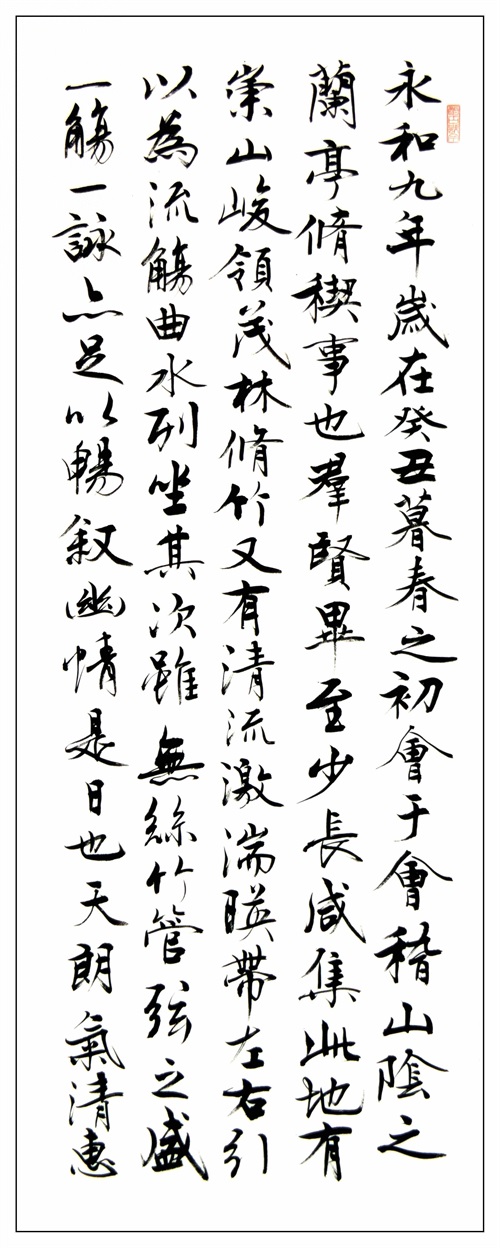 永和九年歲在癸丑暮春之初會于會稽山陰之
蘭亭脩稧事也羣賢畢至少長咸集此地有
崇山峻領茂林脩竹又有清流激湍暎帶左右引
以為流觴曲水列坐其次雖無絲竹管弦之盛
一觴一詠亦足以暢叙幽情是日也天朗氣清惠